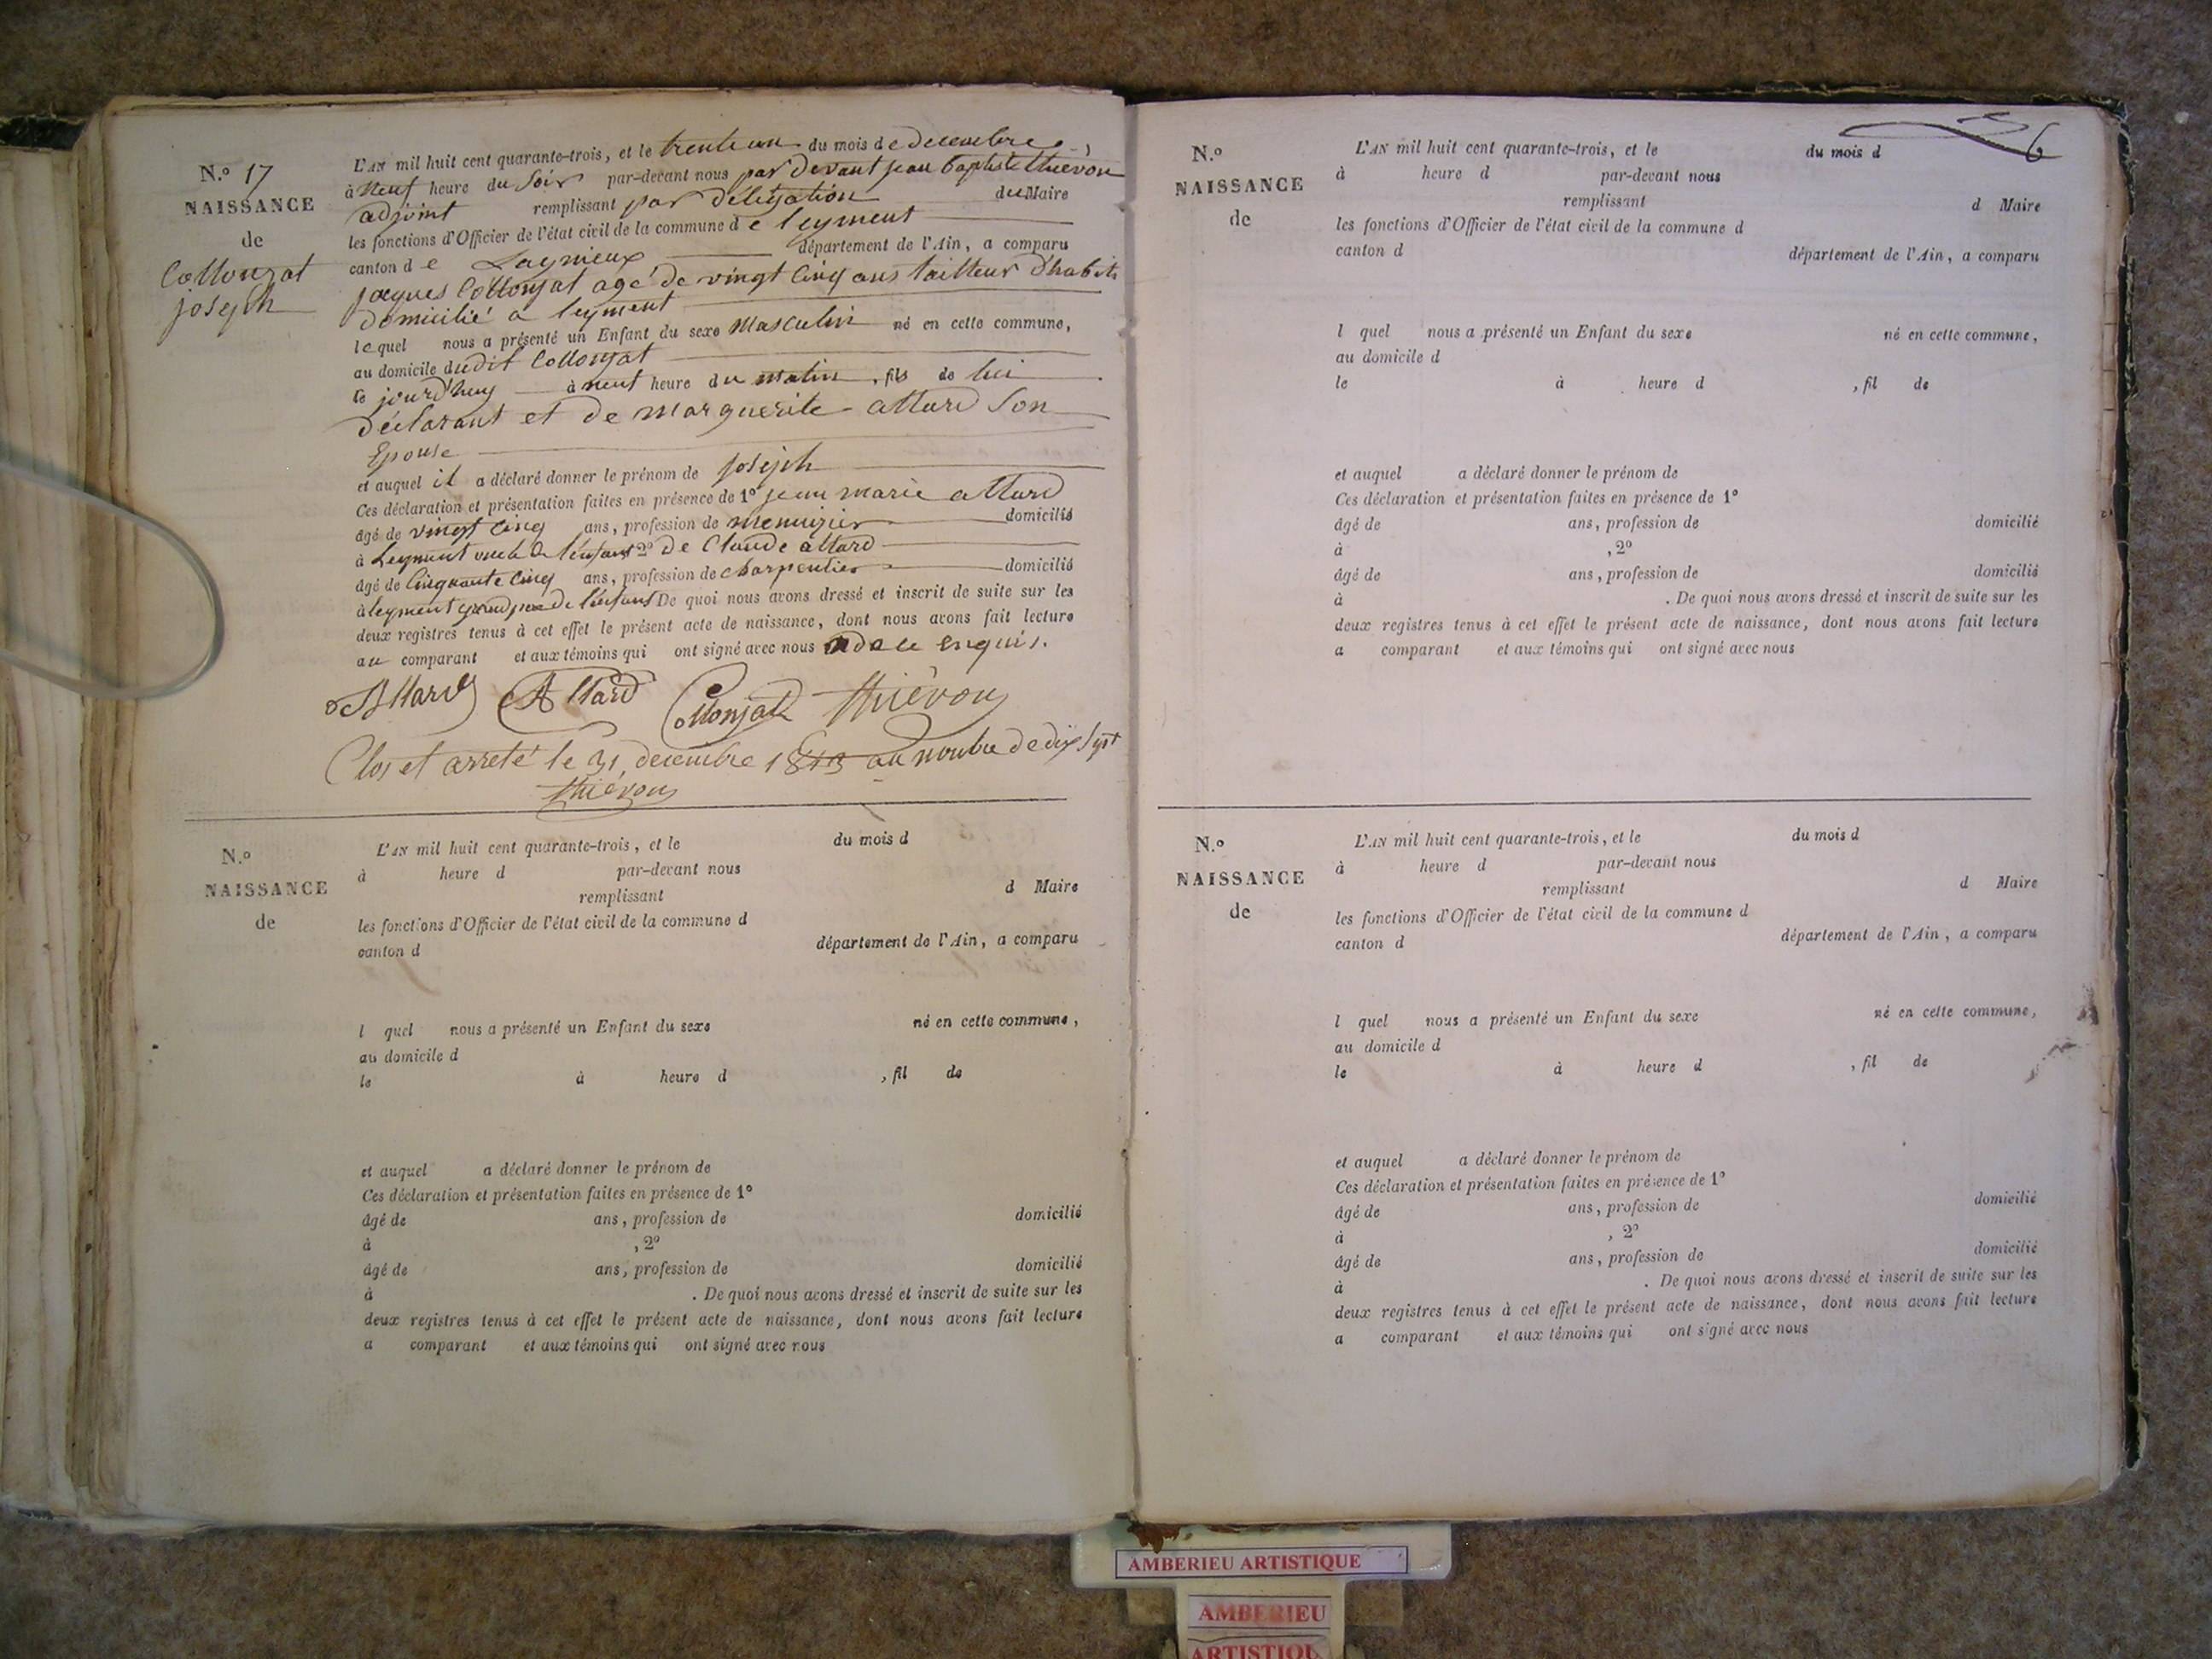 N.º 17
NAISSANCE
de
Collonjat
joseph
L'AN mil huit cent quarante-trois, et le trente un du mois de decembre,
à Neuf heure du soir par-devant nous par devant jean baptiste thiévon
adjoint remplissant par délégation du Maire
les fonctions d'Officier de l'état civil de la commune de leyment
canton de Lagnieux département de l'Ain, a comparu
jacques Collonjat agé de vingt cinq ans tailleur d'habits
domicilié a leyment
lequel nous a présenté un Enfant du sexe Masculin né en cette commune,
au domicile dudit Collonjat
le jourd'huy à neuf heure du matin, fils de lui
déclarant et de marguerite allard son
Epouse
et auquel il a déclaré donner le prénom de joseph
Ces déclaration et présentation faites en présence de 1º jean marie allard
âgé de vingt cinq ans, profession de menuizier domicilié
à Leyment oncle de l'enfant 2º de Claude allard
âgé de Cinquante cinq ans, profession de charpentier domicilié
à leyment grand pere de l'enfant De quoi nous avons dressé et inscrit de suite sur les
deux registres tenus à cet effet le présent acte de naissance, dont nous avons fait lecture
au comparant et aux témoins qui ont signé avec nous de ce enquis.
Allard Allard Collonjat thiévon
Clos et arreté le 31 decembre 1843 au nombre de dix sept
thiévon
N.º
NAISSANCE
de
L'AN mil huit cent quarante-trois, et le du mois d
à heure d par-devant nous
remplissant d Maire
les fonctions d'Officier de l'état civil de la commune d
canton d département de l'Ain, a comparu
l quel nous a présenté un Enfant du sexe né en cette commune,
au domicile d
le à heure d , fil de
et auquel a déclaré donner le prénom de
Ces déclaration et présentation faites en présence de 1º
âgé de ans, profession de domicilié
à , 2º
âgé de ans, profession de domicilié
à . De quoi nous avons dressé et inscrit de suite sur les
deux registres tenus à cet effet le présent acte de naissance, dont nous avons fait lecture
a comparant et aux témoins qui ont signé avec nous
6
N.º
NAISSANCE
de
L'AN mil huit cent quarante-trois, et le du mois d
à heure d par-devant nous
remplissant d Maire
les fonctions d'Officier de l'état civil de la commune d
canton d département de l'Ain, a comparu
l quel nous a présenté un Enfant du sexe né en cette commune,
au domicile d
le à heure d , fil de
et auquel a déclaré donner le prénom de
Ces déclaration et présentation faites en présence de 1º
âgé de ans, profession de domicilié
à , 2º
âgé de ans, profession de domicilié
à . De quoi nous avons dressé et inscrit de suite sur les
deux registres tenus à cet effet le présent acte de naissance, dont nous avons fait lecture
a comparant et aux témoins qui ont signé avec nous
N.º
NAISSANCE
de
L'AN mil huit cent quarante-trois, et le du mois d
à heure d par-devant nous
remplissant d Maire
les fonctions d'Officier de l'état civil de la commune d
canton d département de l'Ain, a comparu
l quel nous a présenté un Enfant du sexe né en cette commune,
au domicile d
le à heure d , fil de
et auquel a déclaré donner le prénom de
Ces déclaration et présentation faites en présence de 1º
âgé de ans, profession de domicilié
à , 2º
âgé de ans, profession de domicilié
à . De quoi nous avons dressé et inscrit de suite sur les
deux registres tenus à cet effet le présent acte de naissance, dont nous avons fait lecture
a comparant et aux témoins qui ont signé avec nous
AMBERIEU ARTISTIQUE
AMBERIEU
ARTISTIQU